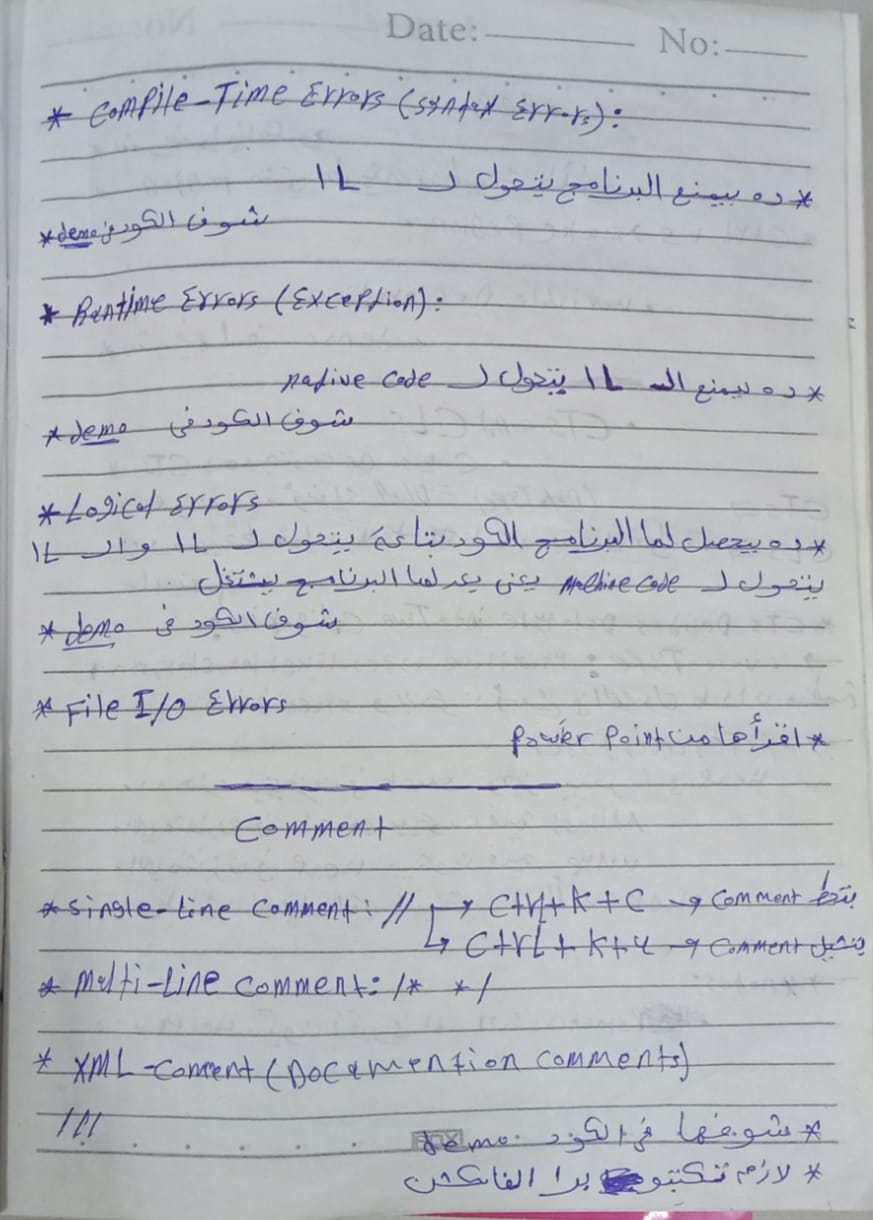 Date: No:
* Compile-Time Errors (syntax Errors):
* ده بيمنع البرنامج يتحول لـ IL
* شوف الكود في demo
* Runtime Errors (Exception):
* ده بيمنع الـ IL يتحول لـ native code
* شوف الكود في demo
* Logical errors
* ده بيحصل لما البرنامج الكود بتاعه يتحول لـ IL والـ IL
يتحول لـ Machine code يعني بعد لما البرنامج يشتغل
* شوف الكود في demo
* File I/O Errors
* اقرأها من Power Point
Comment
* Single-Line Comment: // → Ctrl+K+C → Comment بتحط
↳ Ctrl+K+U → Comment بتشيل
* Multi-Line Comment: /* */
* XML-Coment (Documention comments)
///
* شوفها في الكود demo
* لازم تتكتب برا الفانكشن